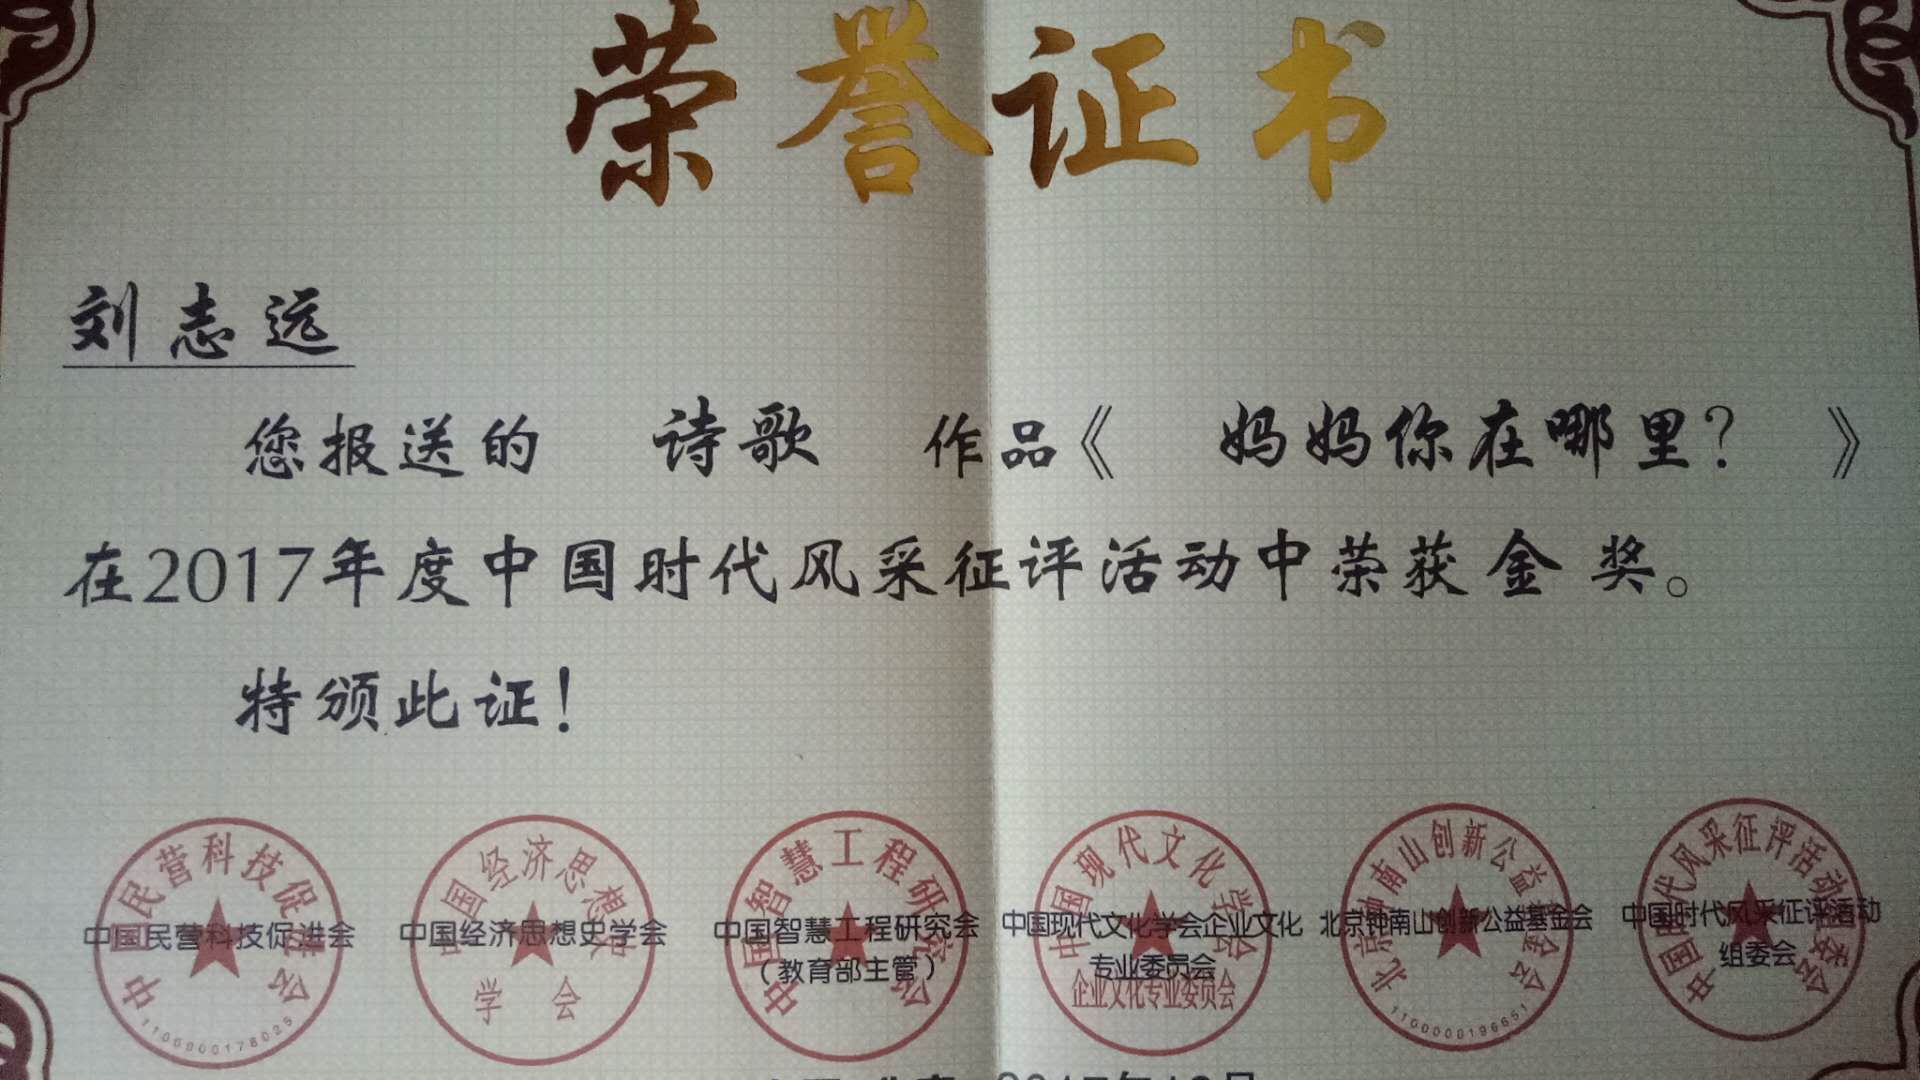 荣誉证书
刘志远
您报送的 诗歌 作品《 妈妈你在哪里? 》
在2017年度中国时代风采征评活动中荣获金奖。
特颁此证!
中国民营科技促进会
中国经济思想史学会
中国智慧工程研究会
(教育部主管)
中国现代文化学会企业文化
专业委员会
北京钟南山创新公益基金会
中国时代风采征评活动
组委会
中国民营科技促进会
1100000178025
中国经济思想史
学会
中国智慧工程研究会
中国现代文化学会
企业文化专业委员会
北京钟南山创新公益基金会
1100000196651
中国时代风采征评活动组委会